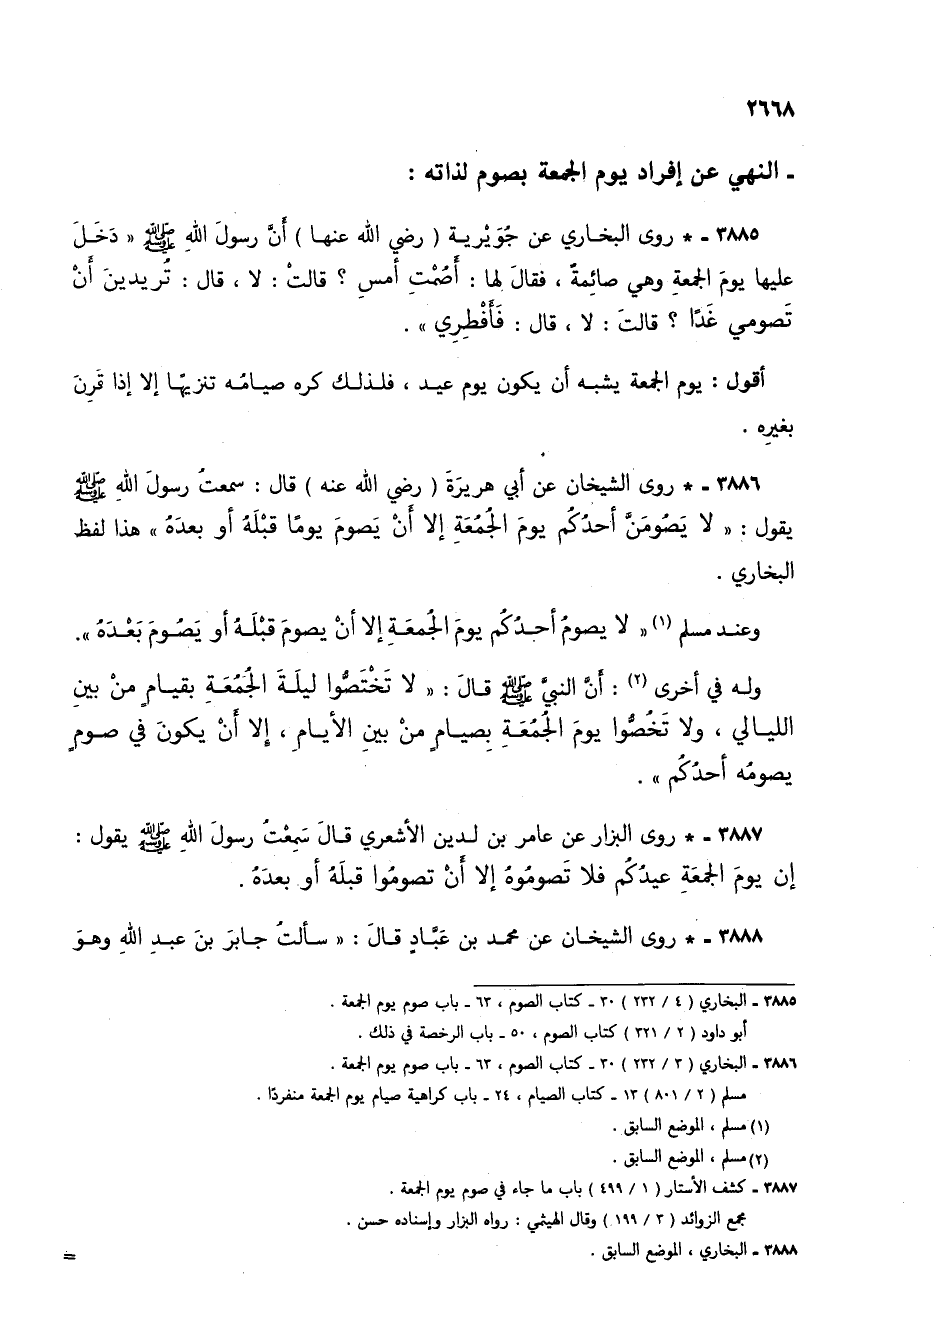 ٢٦٦٨
ـ النهي عن إفراد يوم الجمعة بصوم لذاته :
٣٨٨٥ ـ * روى البخاري عن جُوَيْرية ( رضي الله عنها ) أَنَّ رسولَ اللهِ ﷺ « دَخَلَ
عليها يومَ الجمعةِ وهي صائمةٌ ، فقالَ لها : أَصُمْتِ أمسِ ؟ قالتْ : لا ، قال : تُريدينَ أَنْ
تَصومي غَدًا ؟ قالتَ : لا ، قال : فَأَفْطِرِي » .
أقول : يوم الجمعة يشبه أن يكون يوم عيد ، فلذلك كره صيامُه تنزيهًا إلا إذا قَرِنَ
بغيرِه .
٣٨٨٦ ـ * روى الشيخان عن أبي هريرَةَ ( رضي الله عنه ) قال : سمعتُ رسولَ اللهِ ﷺ
يقول : « لا يَصُومَنَّ أحدُكُم يومَ الجُمُعَةِ إلا أَنْ يَصومَ يومًا قبْلَهُ أو بعدَهُ » هذا لفظ
البخاري .
وعند مسلم (١) « لا يصومُ أحدُكُم يومَ الجُمعَةِ إلا أنْ يصومَ قبْلَهُ أو يَصُومَ بَعْدَهُ » .
وله في أخرى (٢) : أَنَّ النبيَّ ﷺ قالَ : « لا تَخْتَصُّوا ليلَةَ الجُمُعَةِ بقيامٍ منْ بينِ
الليالي ، ولا تَخُصُّوا يومَ الجُمُعَةِ بصيامٍ منْ بينِ الأيامِ ، إلا أَنْ يكونَ في صومٍ
يصومُه أحدُكُم » .
٣٨٨٧ ـ * روى البزار عن عامر بن لدين الأشعري قالَ سَمِعْتُ رسولَ اللهِ ﷺ يقول :
إن يومَ الجمعَةِ عيدُكُم فلا تَصومُوهُ إلا أَنْ تصومُوا قبلَهُ أو بعدَهُ .
٣٨٨٨ ـ * روى الشيخان عن محمد بن عَبَّادٍ قالَ : « سألتُ جابرَ بنَ عبدِ اللهِ وهوَ
٣٨٨٥ ـ البخاري ( ٤ / ٢٣٢ ) ٣٠ ـ كتاب الصوم ، ٦٣ ـ باب صوم يوم الجمعة .
أبو داود ( ٢ / ٣٢١ ) كتاب الصوم ، ٥٠ ـ باب الرخصة في ذلك .
٣٨٨٦ ـ البخاري ( ٣ / ٢٣٢ ) ٣٠ ـ كتاب الصوم ، ٦٣ ـ باب صوم يوم الجمعة .
مسلم ( ٢ / ٨٠١ ) ١٣ ـ كتاب الصيام ، ٢٤ ـ باب كراهية صيام يوم الجمعة منفردًا .
(١) مسلم ، الموضع السابق .
(٢) مسلم ، الموضع السابق .
٣٨٨٧ ـ كشف الأستار ( ١ / ٤٩٩ ) باب ما جاء في صوم يوم الجمعة .
مجمع الزوائد ( ٣ / ١٩٩ ) وقال الهيثمي : رواه البزار وإسناده حسن .
٣٨٨٨ ـ البخاري ، الموضع السابق .
=